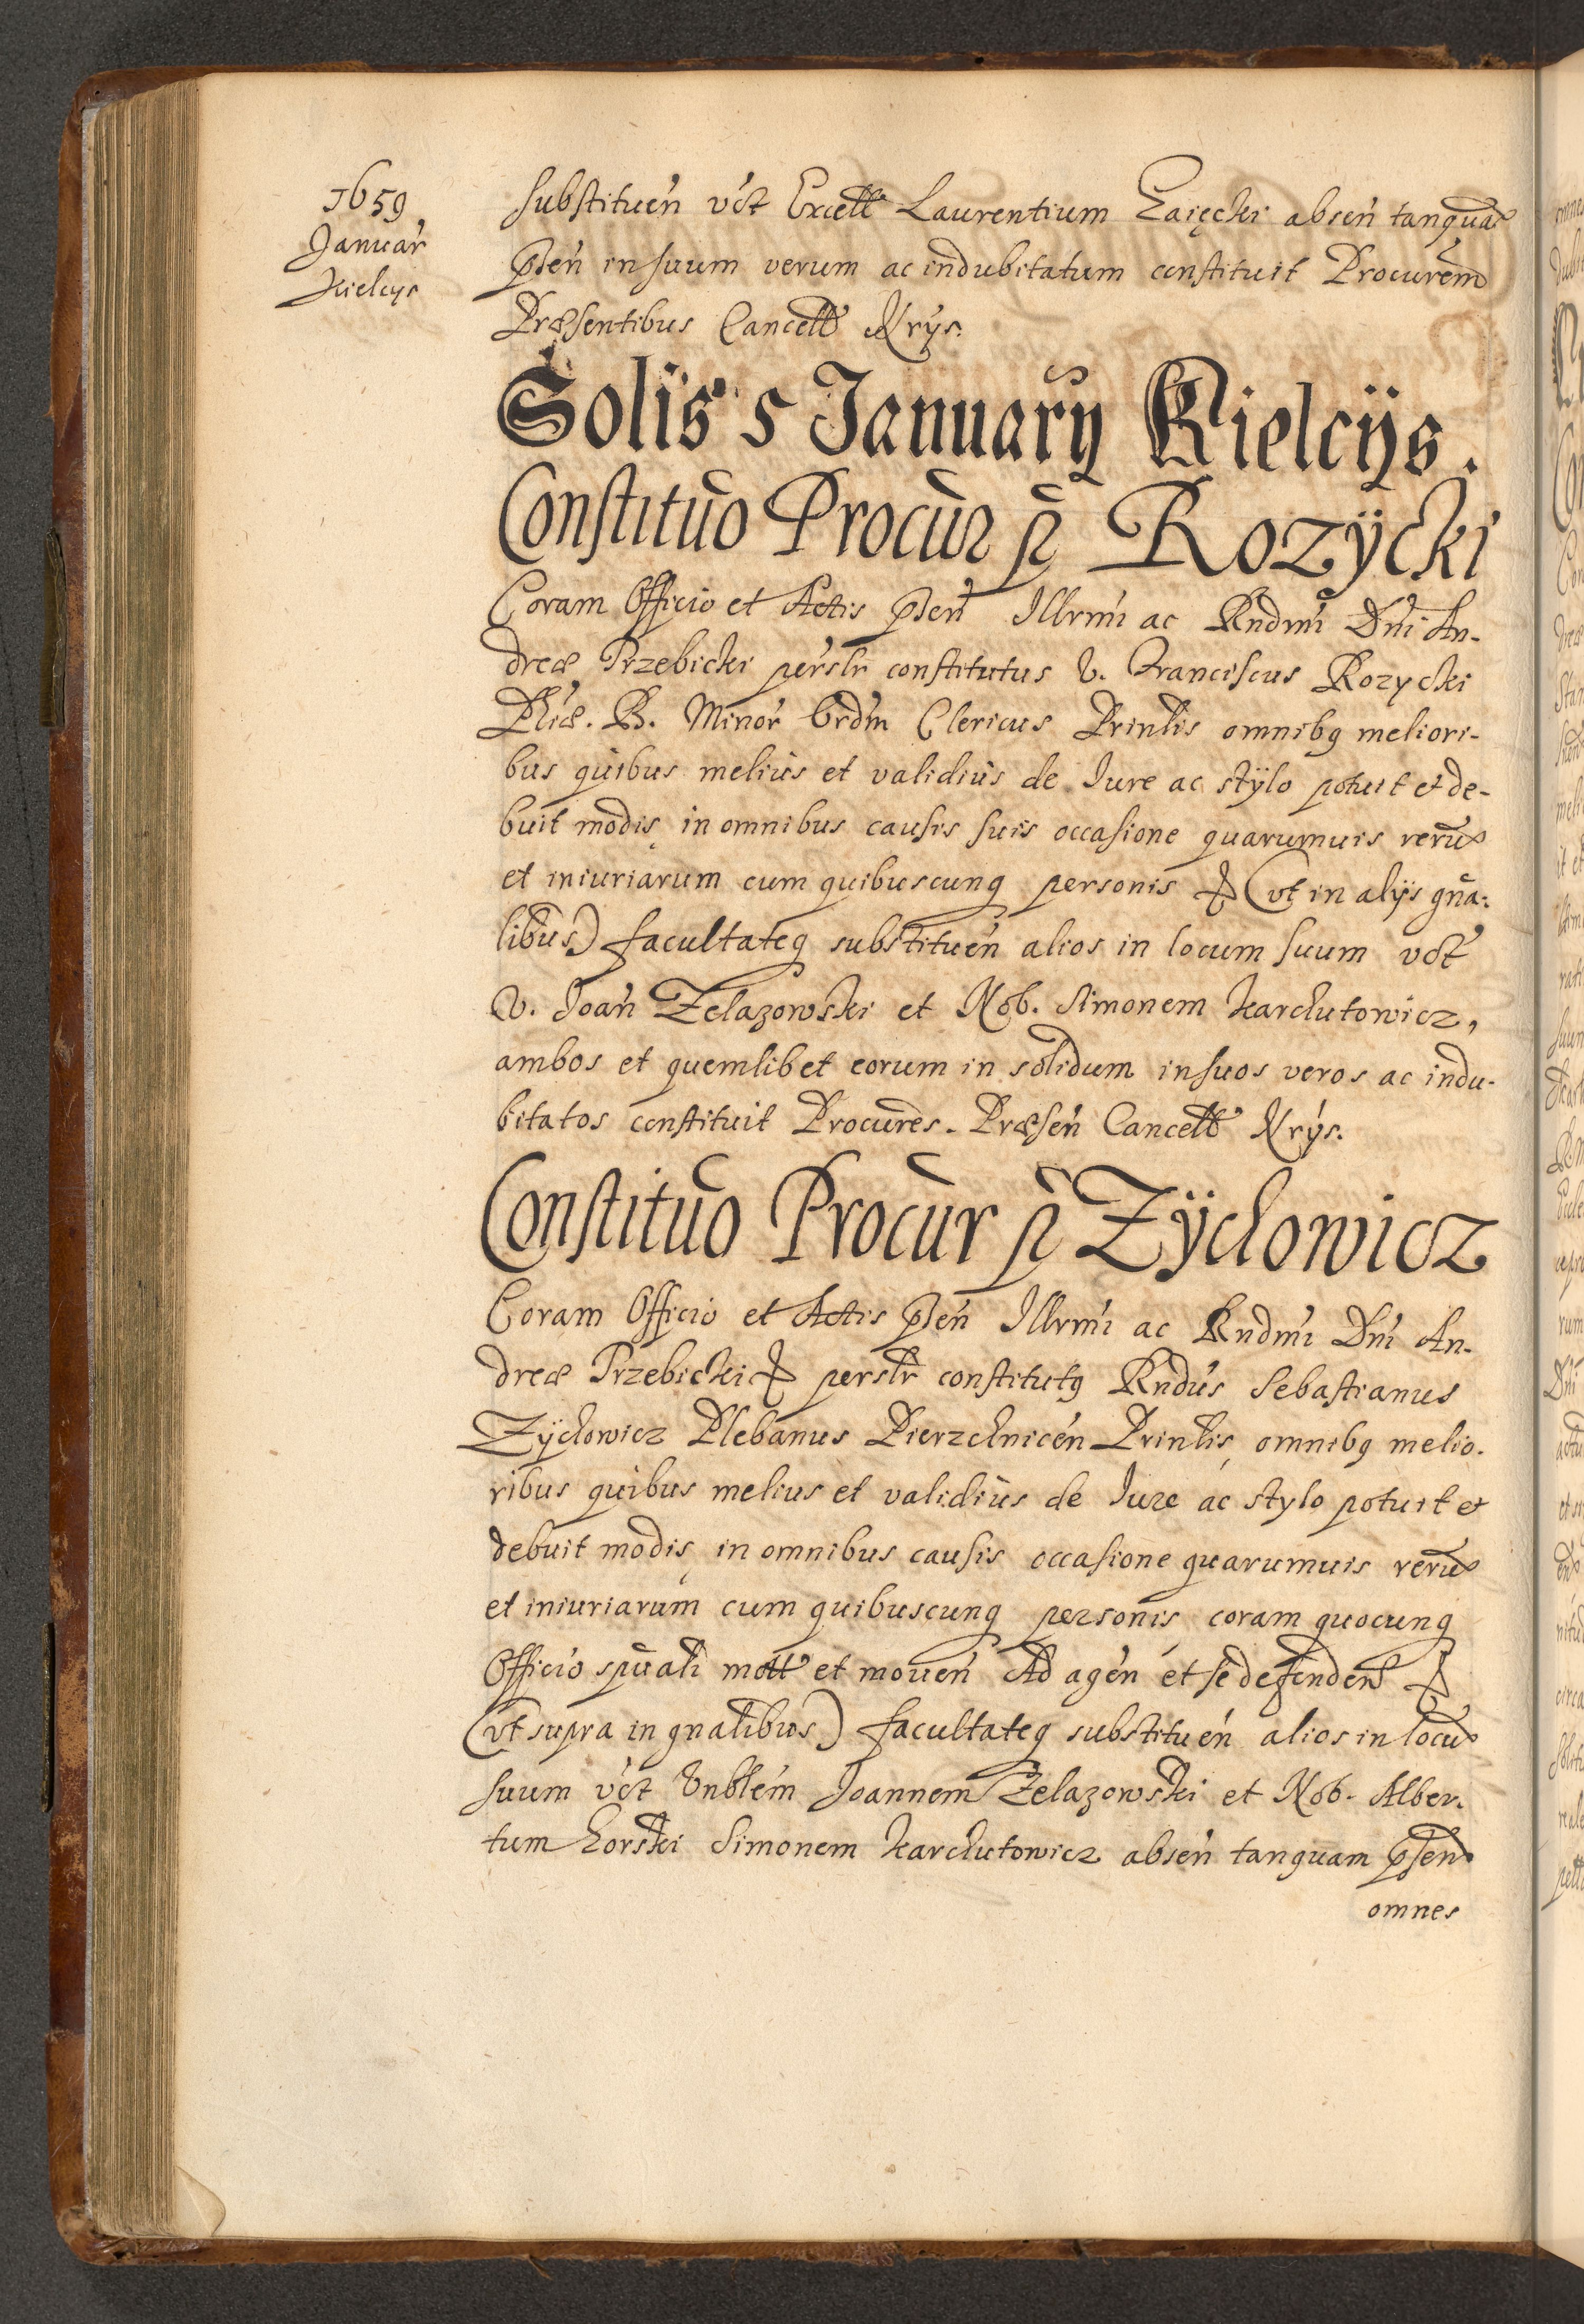 1659
Januar̄
Kielcijs
substitueń vćt Excell̃ Laurentium Zaięcki abseń tanquã
p̃seń in suum verum ac indubitatum constituit Procurem̃
Præsentibus Cancell̃ Nrijs.
Solis 5 Januarij Kielcijs.
Constitũo Procũr p̃ Rozÿcki
Coram Officio et Actis p̃seń Illrmi ac Rndmi Dn̄i An-
dreæ Trzebicki perslr̃ constitutus V. Franciscus Rozycki
Plicæ. B. Minor̃ Ordm̃ Clericus Prinlis omnibq meliori-
bus quibus melius et validius de Iure ac stÿlo potuit et de-
buit modis, in omnibus causis suis occasione quarumuis rerũ
et iniuriarum cum quibuscunq personis & (vt in alijs gña-
libus) facultateq substitueń alios in locum suum vćt
V. Joań Zelazowski et Nob. Simonem Karchutowicz,
ambos et quemlibet eorum in solidum in suos veros ac indu-
bitatos constituit Procures̃. Præseń Cancell̃ Nrijs.
Constitũo Procũr p̃ Zÿchowicz
Coram Officio et Actis p̃seń Illrmi ac Rndmi Dn̄i An-
dreæ Trzebicki & perslr̃ constitutq Rndus Sebastianus
Zÿchowicz Plebanus Pierzchniceń Prinlis, omnibq melio-
ribus quibus melius et validius de Iure ac stylo potuit et
debuit modis, in omnibus causis occasione quarumuis rerũ
et iniuriarum cum quibuscunq personis coram quocunq
Officio spũali mott̃ et moueń Ad ageń et se defendeń &
(vt supra in gnalibus) facultateq substitueń alios in locũ
suum vćt Vnblem̃ Joannem Zelazowski et Nob. Alber-
tum Zorski Simonem Karchutowicz abseń tanquam p̃seń
omnes